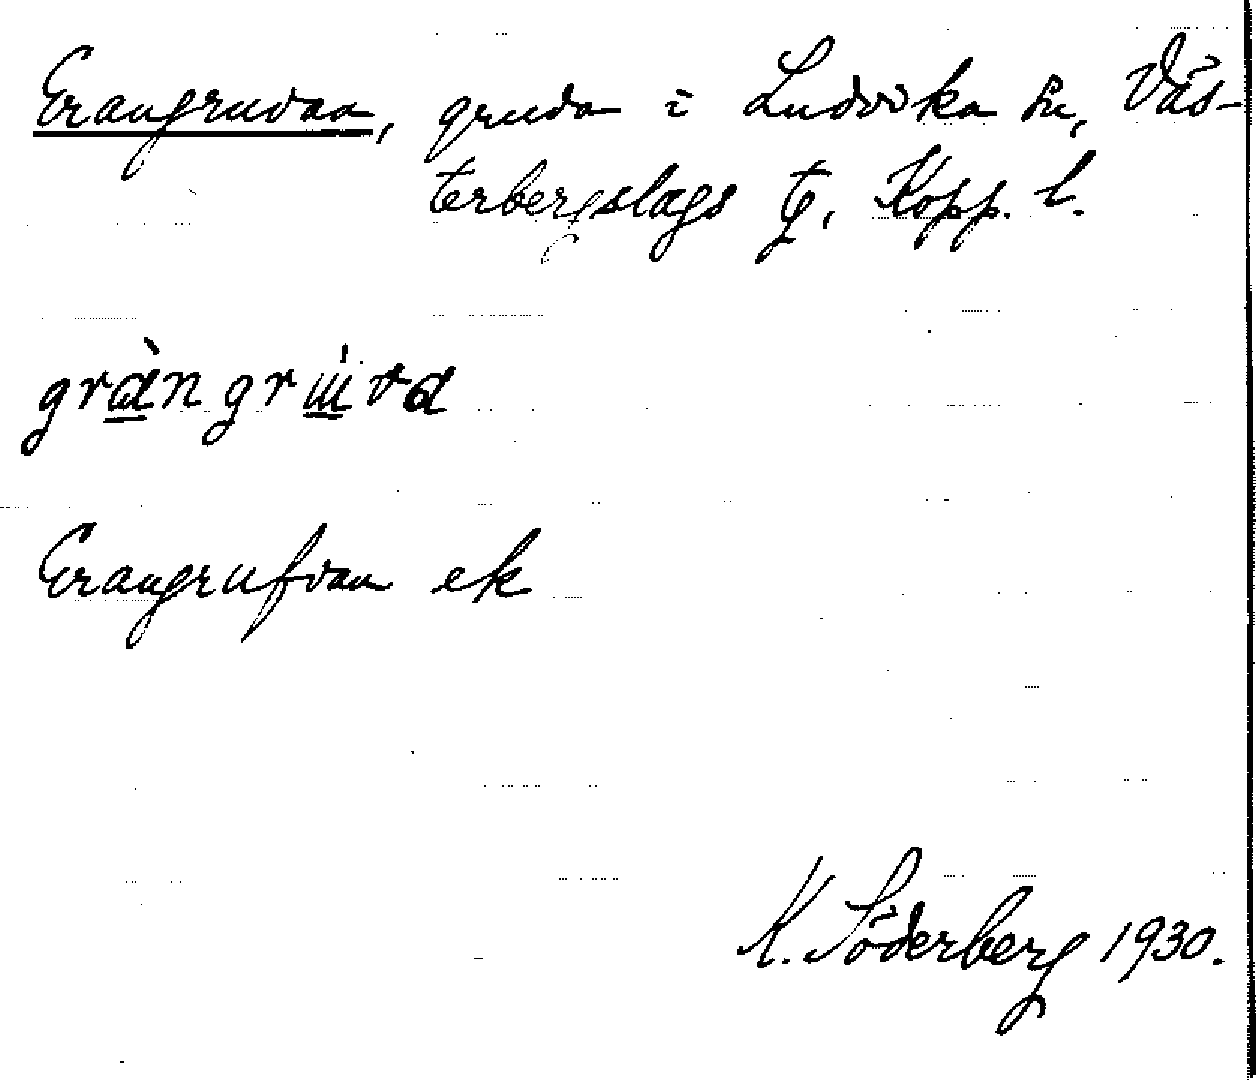 Grangruvan, gruva i Ludvika sn, Väs-
terbergslags tg, Kopp. l.
gràngrúva
Grangrufvan ek
K. Söderberg 1930.